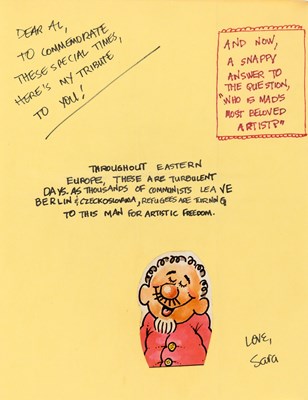 DEAR AL,
TO COMMEMORATE
THESE SPECIAL TIMES,
HERE'S MY TRIBUTE
TO YOU!
AND NOW,
A SNAPPY
ANSWER TO
THE QUESTION,
"WHO IS MAD'S
MOST BELOVED
ARTIST?"
THROUGHOUT EASTERN
EUROPE, THESE ARE TURBULENT
DAYS. AS THOUSANDS OF COMMUNISTS LEAVE
BERLIN & CZECKOSLOVAKIA, REFUGEES ARE TURNING
TO THIS MAN FOR ARTISTIC FREEDOM.
LOVE,
Sara